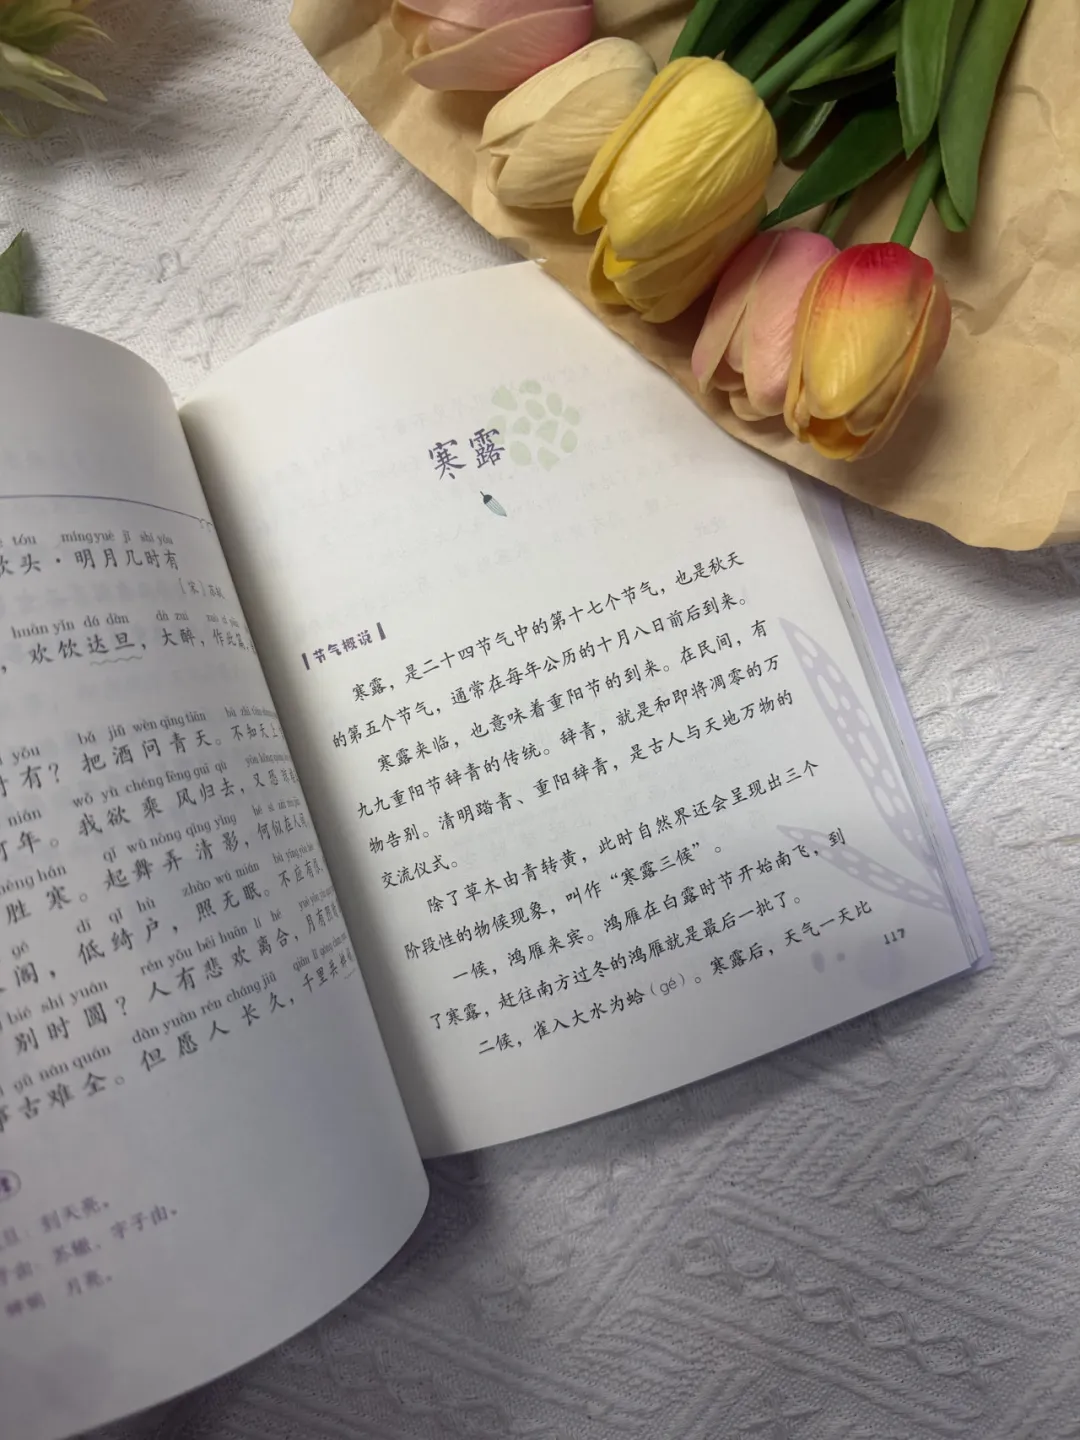 tóu míng yuè jǐ shí yǒu
头·明月几时有
〔宋〕苏轼
huān yǐn dá dàn dà zuì
，欢饮达旦，大醉，作此篇，
yǒu bǎ jiǔ wèn qīng tiān
时有？把酒问青天。不知天上
nián wǒ yù chéng fēng guī qù
年。我欲乘风归去，又恐
shèng hán qǐ wǔ nòng qīng yǐng hé sì zài rén
胜寒。起舞弄清影，何似在人间
gé dī qǐ hù zhào wú mián
阁，低绮户，照无眠。不应有
bié shí yuán rén yǒu bēi huān lí hé
别时圆？人有悲欢离合，月有阴
gǔ nán quán dàn yuàn rén cháng jiǔ
事古难全。但愿人长久，千里共
旦：到天亮。
子由：苏辙，字子由。
婵娟 月亮。
寒露
节气概说
寒露，是二十四节气中的第十七个节气，也是秋天
的第五个节气，通常在每年公历的十月八日前后到来。
寒露来临，也意味着重阳节的到来。在民间，有
九九重阳节辞青的传统。辞青，就是和即将凋零的万
物告别。清明踏青、重阳辞青，是古人与天地万物的
交流仪式。
除了草木由青转黄，此时自然界还会呈现出三个
阶段性的物候现象，叫作“寒露三候”。
一候，鸿雁来宾。鸿雁在白露时节开始南飞，到
了寒露，赶往南方过冬的鸿雁就是最后一批了。
二候，雀入大水为蛤（gé）。寒露后，天气一天比
117